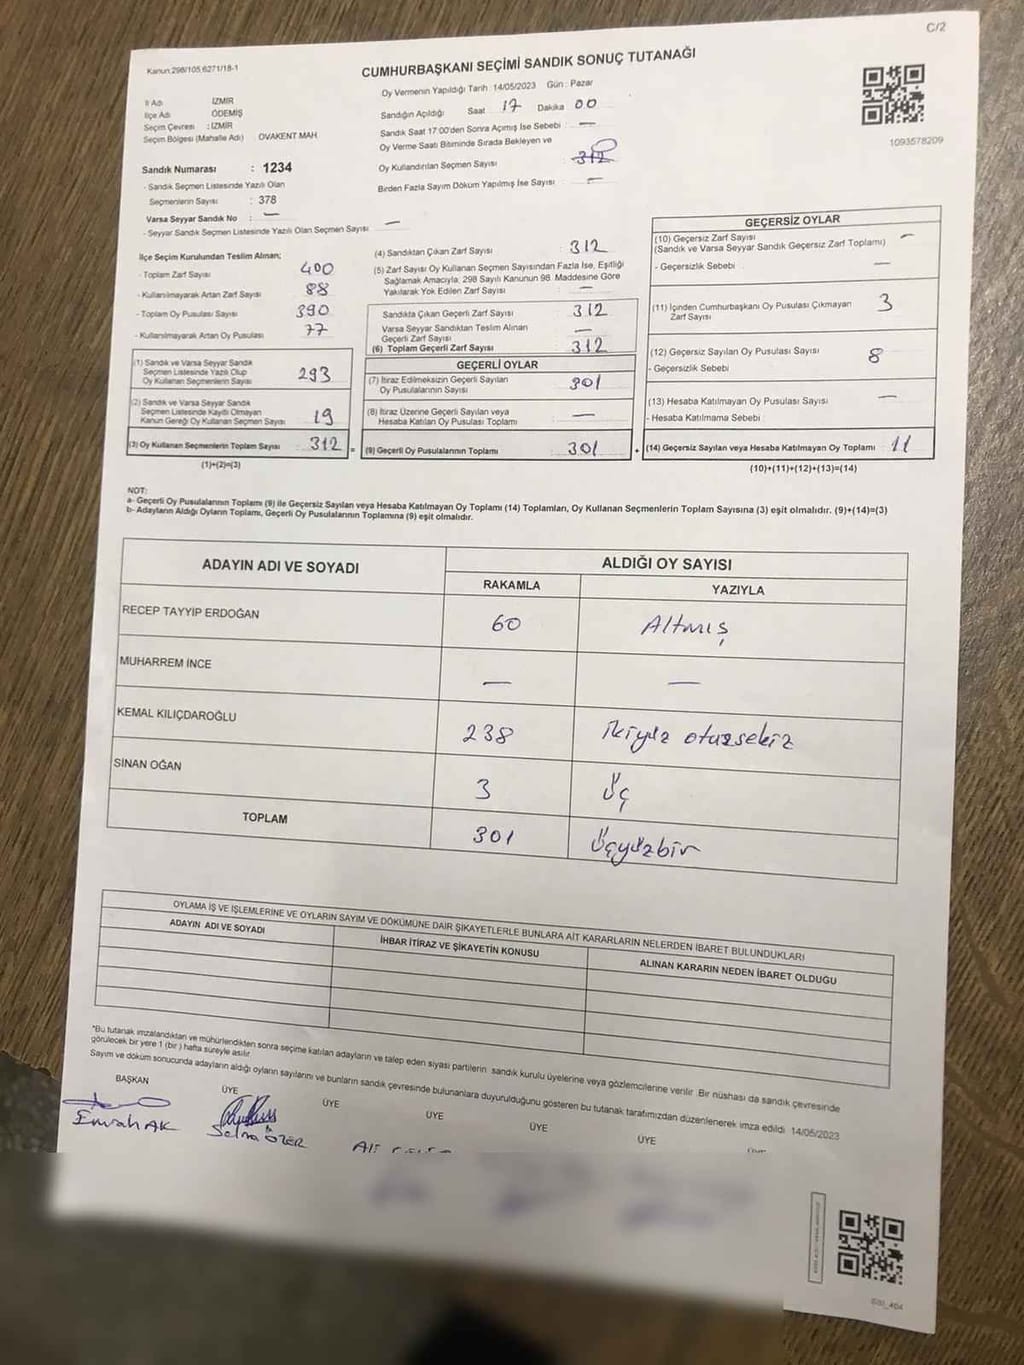 C/2
Kanun 298/105,6271/18-1
CUMHURBAŞKANI SEÇİMİ SANDIK SONUÇ TUTANAĞI
1093578209
İl Adı : İZMİR
İlçe Adı : ÖDEMİŞ
Seçim Çevresi : İZMİR
Seçim Bölgesi (Mahalle Adı) OVAKENT MAH.
Sandık Numarası : 1234
- Sandık Seçmen Listesinde Yazılı Olan
Seçmenlerin Sayısı : 378
Varsa Seyyar Sandık No : —
- Seyyar Sandık Seçmen Listesinde Yazılı Olan Seçmen Sayısı —
Oy Vermenin Yapıldığı Tarih : 14/05/2023 Gün : Pazar
Sandığın Açıldığı Saat 17 Dakika 00
Sandık Saat 17:00'den Sonra Açımış İse Sebebi —
Oy Verme Saati Bitiminde Sırada Bekleyen ve
Oy Kullandırılan Seçmen Sayısı 312
Birden Fazla Sayım Döküm Yapılmış İse Sayısı —
İlçe Seçim Kurulundan Teslim Alınan;
- Toplam Zarf Sayısı 400
- Kullanılmayarak Artan Zarf Sayısı 88
- Toplam Oy Pusulası Sayısı 390
- Kullanılmayarak Artan Oy Pusulası 77
(1) Sandık ve Varsa Seyyar Sandık
Seçmen Listesinde Yazılı Olup
Oy Kullanan Seçmenlerin Sayısı 293
(2) Sandık ve Varsa Seyyar Sandık
Seçmen Listesinde Kaydı Olmayan
Kanun Gereği Oy Kullanan Seçmen Sayısı 19
(3) Oy Kullanan Seçmenlerin Toplam Sayısı 312 =
(1)+(2)=(3)
(4) Sandıktan Çıkan Zarf Sayısı 312
(5) Zarf Sayısı Oy Kullanan Seçmen Sayısından Fazla İse, Eşitliği
Sağlamak Amacıyla, 298 Sayılı Kanunun 98. Maddesine Göre
Yakılarak Yok Edilen Zarf Sayısı —
Sandıkta Çıkan Geçerli Zarf Sayısı 312
Varsa Seyyar Sandıktan Teslim Alınan
Geçerli Zarf Sayısı —
(6) Toplam Geçerli Zarf Sayısı 312
GEÇERLİ OYLAR
(7) İtiraz Edilmeksizin Geçerli Sayılan
Oy Pusulalarının Sayısı 301
(8) İtiraz Üzerine Geçerli Sayılan veya
Hesaba Katılan Oy Pusulası Toplamı —
(9) Geçerli Oy Pusulalarının Toplamı 301 +
GEÇERSİZ OYLAR
(10) Geçersiz Zarf Sayısı —
(Sandık ve Varsa Seyyar Sandık Geçersiz Zarf Toplamı)
- Geçersizlik Sebebi —
(11) İçinden Cumhurbaşkanı Oy Pusulası Çıkmayan
Zarf Sayısı 3
(12) Geçersiz Sayılan Oy Pusulası Sayısı 8
- Geçersizlik Sebebi
(13) Hesaba Katılmayan Oy Pusulası Sayısı —
- Hesaba Katılmama Sebebi :
(14) Geçersiz Sayılan veya Hesaba Katılmayan Oy Toplamı 11
(10)+(11)+(12)+(13)=(14)
NOT:
a- Geçerli Oy Pusulalarının Toplamı (9) ile Geçersiz Sayılan veya Hesaba Katılmayan Oy Toplamı (14) Toplamları, Oy Kullanan Seçmenlerin Toplam Sayısına (3) eşit olmalıdır. (9)+(14)=(3)
b- Adayların Aldığı Oyların Toplamı, Geçerli Oy Pusulalarının Toplamına (9) eşit olmalıdır.
ADAYIN ADI VE SOYADI
ALDIĞI OY SAYISI
RAKAMLA YAZIYLA
RECEP TAYYİP ERDOĞAN 60 Altmış
MUHARREM İNCE — —
KEMAL KILIÇDAROĞLU 238 ikiyüz otuzsekiz
SİNAN OĞAN 3 Üç
TOPLAM 301 Üçyüzbir
OYLAMA İŞ VE İŞLEMLERİNE VE OYLARIN SAYIM VE DÖKÜMÜNE DAİR ŞİKAYETLERLE BUNLARA AİT KARARLARIN NELERDEN İBARET BULUNDUKLARI
ADAYIN ADI VE SOYADI İHBAR İTİRAZ VE ŞİKAYETİN KONUSU ALINAN KARARIN NEDEN İBARET OLDUĞU
"Bu tutanak imzalandıktan ve mühürlendikten sonra seçime katılan adayların ve talep eden siyasi partilerin sandık kurulu üyelerine veya gözlemcilerine verilir. Bir nüshası da sandık çevresinde
görülecek bir yere 1 (bir) hafta süreyle asılır.
Sayım ve döküm sonucunda adayların aldığı oyların sayılarını ve bunların sandık çevresinde bulunanlara duyurulduğunu gösteren bu tutanak tarafımızdan düzenlenerek imza edildi 14/05/2023
BAŞKAN ÜYE ÜYE ÜYE ÜYE ÜYE
Emrah AK Selma ÖZER